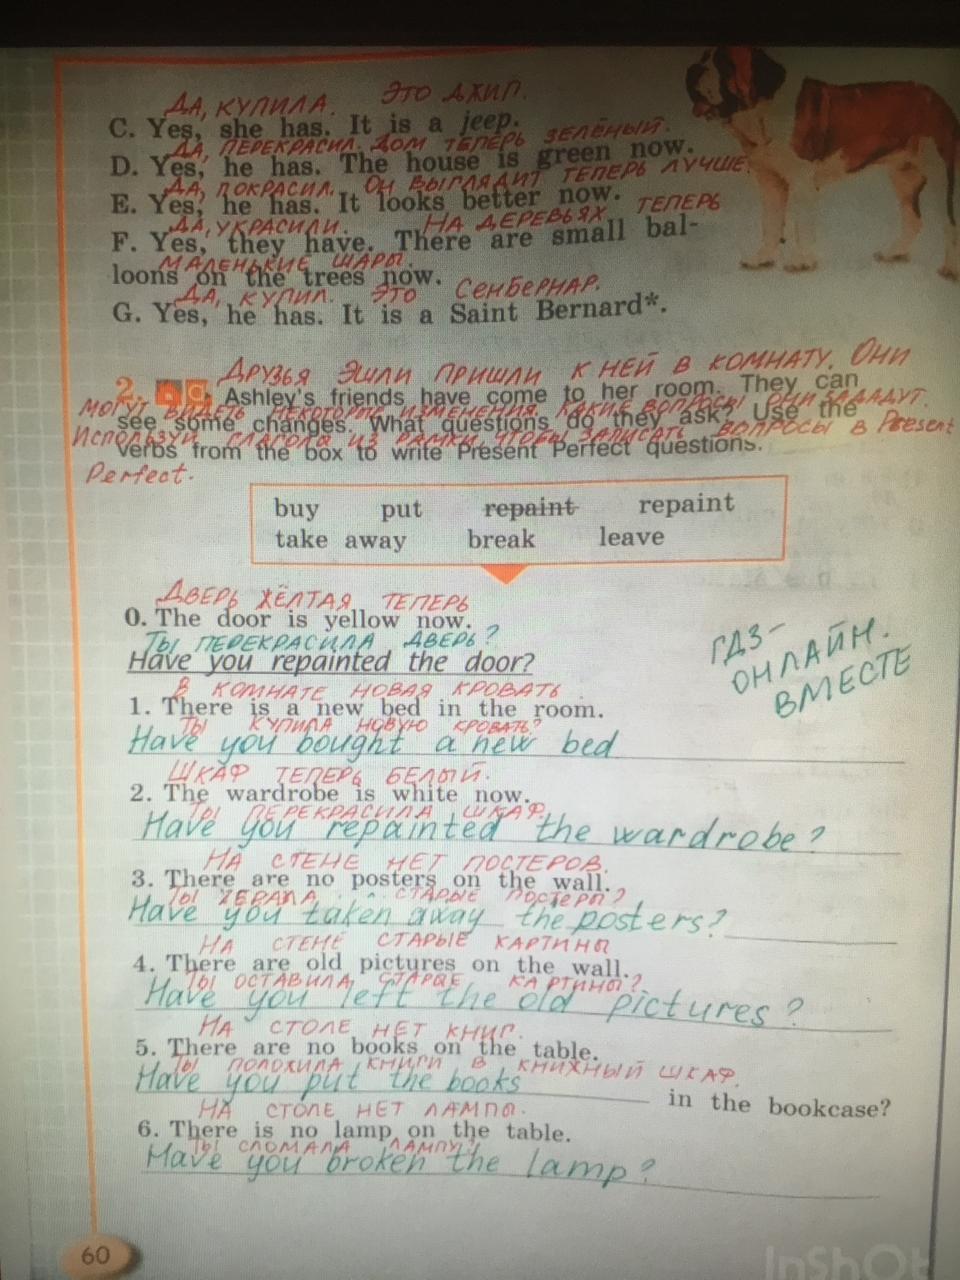 ДА, КУПИЛА. ЭТО ДЖИП.
C. Yes, she has. It is a jeep.
ДА, ПЕРЕКРАСИЛ. ДОМ ТЕПЕРЬ ЗЕЛЁНЫЙ.
D. Yes, he has. The house is green now.
ДА, ПОКРАСИЛ. ОН ВЫГЛЯДИТ ТЕПЕРЬ ЛУЧШЕ.
E. Yes, he has. It looks better now.
ДА, УКРАСИЛИ. НА ДЕРЕВЬЯХ ТЕПЕРЬ
F. Yes, they have. There are small bal-
МАЛЕНЬКИЕ ШАРЫ.
loons on the trees now.
ДА, КУПИЛ. ЭТО СЕНБЕРНАР.
G. Yes, he has. It is a Saint Bernard*.
ДРУЗЬЯ ЭШЛИ ПРИШЛИ К НЕЙ В КОМНАТУ. ОНИ
2. Ashley's friends have come to her room. They can
МОГУТ ВИДЕТЬ НЕКОТОРЫЕ ИЗМЕНЕНИЯ. КАКИЕ ВОПРОСЫ ОНИ ЗАДАДУТ.
see some changes. What questions do they ask? Use the
ИСПОЛЬЗУЙ ГЛАГОЛЫ ИЗ РАМКИ, ЧТОБЫ ЗАПИСАТЬ ВОПРОСЫ В Present
verbs from the box to write Present Perfect questions.
Perfect.
buy put repaint repaint
take away break leave
ДВЕРЬ ЖЁЛТАЯ ТЕПЕРЬ
0. The door is yellow now.
ТЫ ПЕРЕКРАСИЛА ДВЕРЬ?
Have you repainted the door?
ГДЗ-
ОНЛАЙН.
ВМЕСТЕ
В КОМНАТЕ НОВАЯ КРОВАТЬ
1. There is a new bed in the room.
ТЫ КУПИЛА НОВУЮ КРОВАТЬ?
Have you bought a new bed
ШКАФ ТЕПЕРЬ БЕЛЫЙ.
2. The wardrobe is white now.
ТЫ ПЕРЕКРАСИЛА ШКАФ.
Have you repainted the wardrobe?
НА СТЕНЕ НЕТ ПОСТЕРОВ.
3. There are no posters on the wall.
ТЫ СТАРЫЕ ПОСТЕРЫ?
Have you taken away the posters?
НА СТЕНЕ СТАРЫЕ КАРТИНЫ
4. There are old pictures on the wall.
ТЫ ОСТАВИЛА СТАРЫЕ КАРТИНЫ?
Have you left the old pictures?
НА СТОЛЕ НЕТ КНИГ.
5. There are no books on the table.
ТЫ ПОЛОЖИЛА КНИГИ В КНИЖНЫЙ ШКАФ.
Have you put the books in the bookcase?
НА СТОЛЕ НЕТ ЛАМПЫ.
6. There is no lamp on the table.
ТЫ СЛОМАЛА ЛАМПУ?
Have you broken the lamp?
60
InShOt